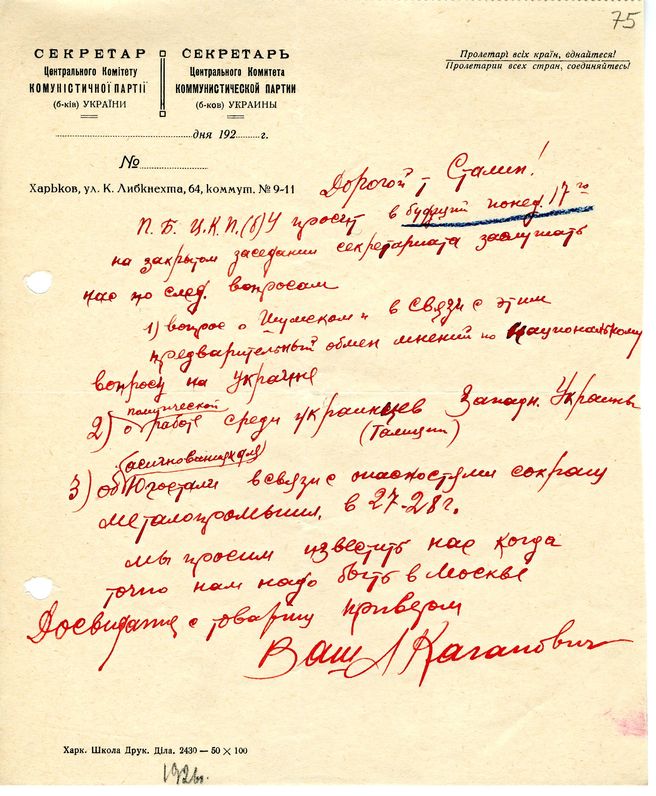 75
СЕКРЕТАР
Центрального Комітету
КОМУНІСТИЧНОЇ ПАРТІЇ
(б-ків) УКРАЇНИ
СЕКРЕТАРЬ
Центрального Комитета
КОММУНИСТИЧЕСКОЙ ПАРТИИ
(б-ков) УКРАИНЫ
Пролетарі всіх країн, єднайтеся!
Пролетарии всех стран, соединяйтесь!
дня 192 г.
№
Харьков, ул. К. Либкнехта, 64, коммут. № 9-11
Дорогой т Сталин!
П.Б. Ц.К.П.(б)У просит в будущий понед. 17го
на закрытом заседании секретариата заслушать
нас по след. вопросам
1) вопрос о Шумском и в связи с этим
предварительный обмен мнений по национальному
вопросу на Украине
политической
2) о работе среди украинцев Западн. Украины
(Галиции)
ассигнованиях для
3) об Югостали в связи с опасностями сокращ
металопромышл. в 27-28г.
мы просим известить нас когда
точно нам надо быть в Москве
Досвидание с товарищ приветом
Ваш Л Каганович
Харк. Школа Друк. Діла. 2430 — 50 × 100
1926г.